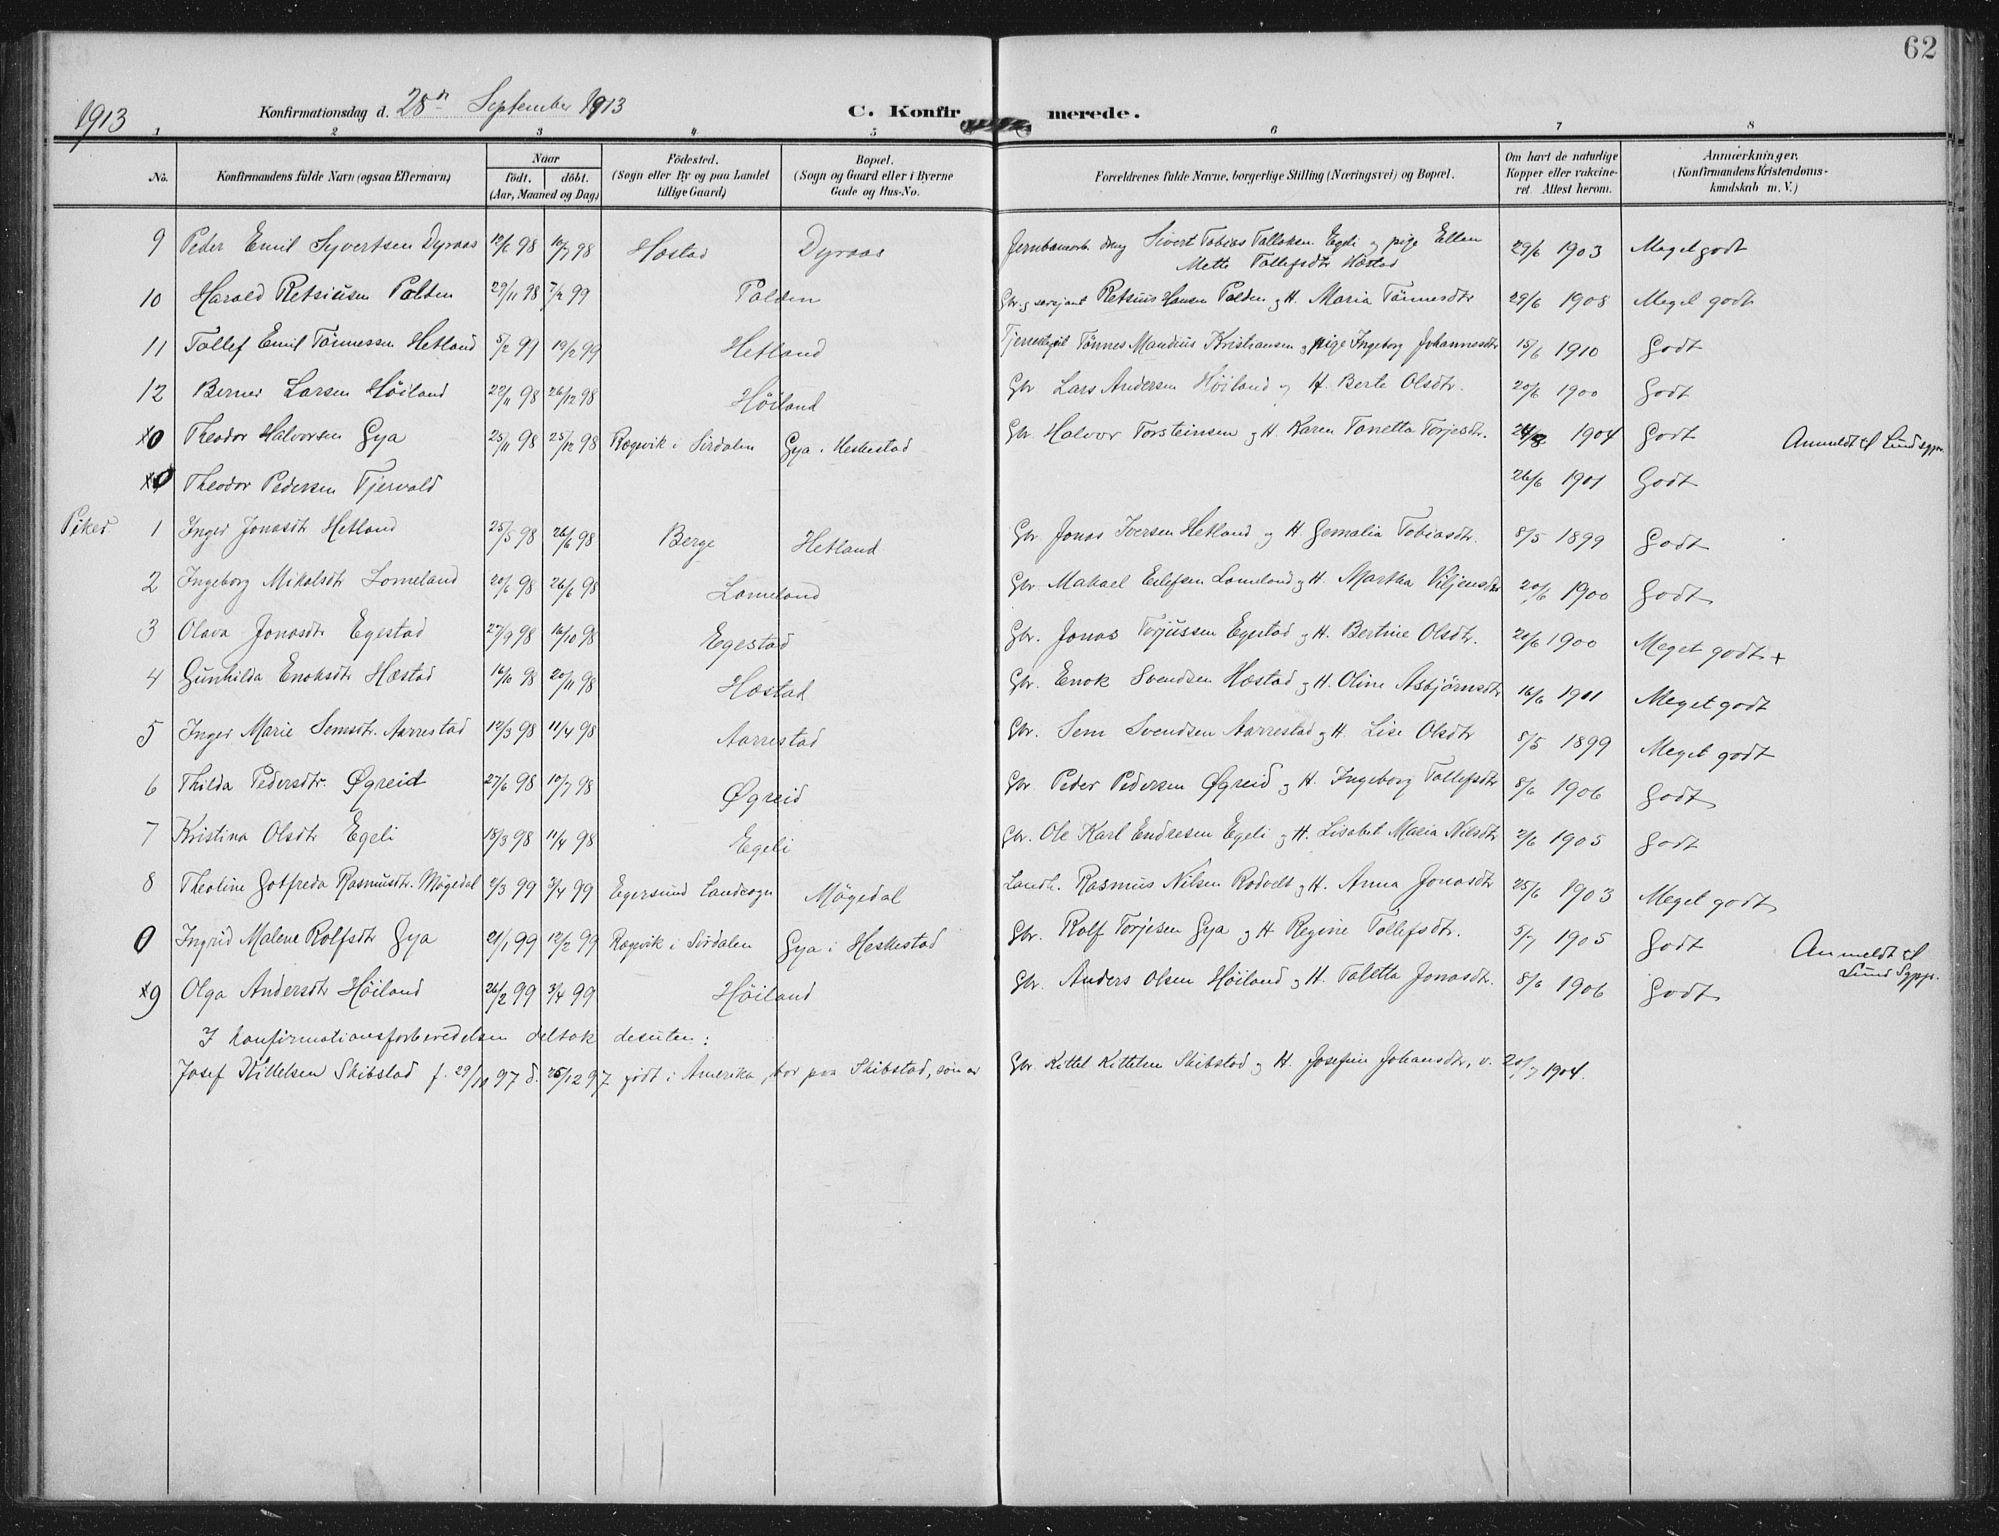 62
1913 Konfirmationsdag d. 28de September 1913 C. Konfirmerede.
1 2 3 4 5 6 7 8
No. Konfirmandens fulde Navn (ogsaa Efternavn) Naar født. døbt. (Aar, Maaned og Dag) Födested. (Sogn eller By og paa Landet tillige Gaard) Bopæl. (Sogn og Gaard eller i Byerne Gade og Hus-No. Forældrenes fulde Navne, borgerlige Stilling (Næringsvei) og Bopæl. Om havt de naturlige Kopper eller vakcineret. Attest herom. Anmærkninger. (Konfirmandens Kristendomskundskab m. V.)
9 Peder Emil Syvertsen Dyraas 98 10/7 98 Hæstad Dyraas Sivert Tobias Tallaksen Egeli og pige Ellen Mette Tollefsdtr Hæstad 29/6 1903 Meget godt
10 Harald Retsiusen Polden 29/11 98 7/2 99 Polden Gbr. og sersjant Retsius Hansen Polden og H. Maria Tönnesdtr 29/6 1908 Meget godt
11 Tollef Emil Tönnessen Hetland 5/2 99 19/2 99 Hetland Tønnes Mandius Kristiansen og pige Ingeborg Johannesdtr 15/6 1910 Godt
12 Berner Larsen Höiland 22/11 98 26/12 98 Höiland Gbr Lars Andersen Höiland og H. Berte Olsdtr. 20/6 1900 Godt
0 Theodor Halvorsen Gya 25/11 98 25/12 98 Rægevik i Sirdalen Gya i Heskestad Gbr. Halvor Torsteinsen og H. Karen Tonetta Torjesdtr. 1904 Godt Anmeldt til Lund sgpr.
0 Theodor Pedersen Tjervald 26/6 1901 Godt
Piker 1 Inger Jonasdtr Hetland 25/5 98 26/6 98 Berge Hetland Gbr. Jonas Iversen Hetland og H. Gemalia Tobiasdtr. 8/5 1899 Godt
2 Ingeborg Mikalsdtr Lomeland 20/6 98 26/6 98 Lomeland Gbr. Mikael Eilefsen Lomeland og H. Martha Viljensdtr 20/6 1900 Godt
3 Olava Jonasdtr Egestad 27/9 98 16/10 98 Egestad Gbr. Jonas Torjussen Egestad og H. Bertine Olsdtr. 20/6 1900 Meget godt +
4 Gunhilda Enoksdtr Hæstad 16/10 98 20/11 98 Hæstad Gbr. Enok Svendsen Hæstad og H. Oline Asbjörnsdtr 16/6 1901 Meget godt
5 Inger Marie Semsdtr. Aarrestad 12/3 98 11/4 98 Aarrestad Gbr. Sem Svendsen Aarrestad og H. Lise Olsdtr 8/5 1899 Meget godt
6 Thilda Pedersdtr. Øgreid 27/6 98 10/7 98 Øgreid Gbr. Peder Pedersen Øgreid og H. Ingeborg Tollefsdtr 8/6 1906 Godt
7 Kristina Olsdtr Egeli 18/3 98 11/4 98 Egeli Gbr. Ole Karl Endresen Egeli og H. Lisabet Maria Nilsdtr 2/6 1905 Godt
8 Theoline Gotfreda Rasmusdtr. Mögedal 2/3 99 3/4 99 Egersund Landsogn Mögedal Landh. Rasmus Nilsen Rodvelt og H. Anna Jonasdtr 25/6 1903 Meget godt
0 Ingrid Malene Rolfsdtr Gya 21/1 99 12/2 99 Rægevik i Sirdalen Gya i Heskestad Gbr. Rolf Torjesen Gya og H Regine Tollefsdtr. 5/7 1905 Godt Anmeldt til Lund Sgpr.
9 Olga Andersdtr Höiland 26/2 99 3/4 99 Höiland Gbr. Anders Olsen Höiland og H. Taletta Jonasdtr. 8/6 1906 Godt
I konfirmationsforberedelsen deltok desuten:
Josef Kittelsen Skibstad f. 29/10 97 d. 25/12 97 født i Amerika, bor paa Skibstad, søn av Gbr. Kittel Kittelsen Skibstad og H. Josefine Johansdtr, v. 20/7 1904.